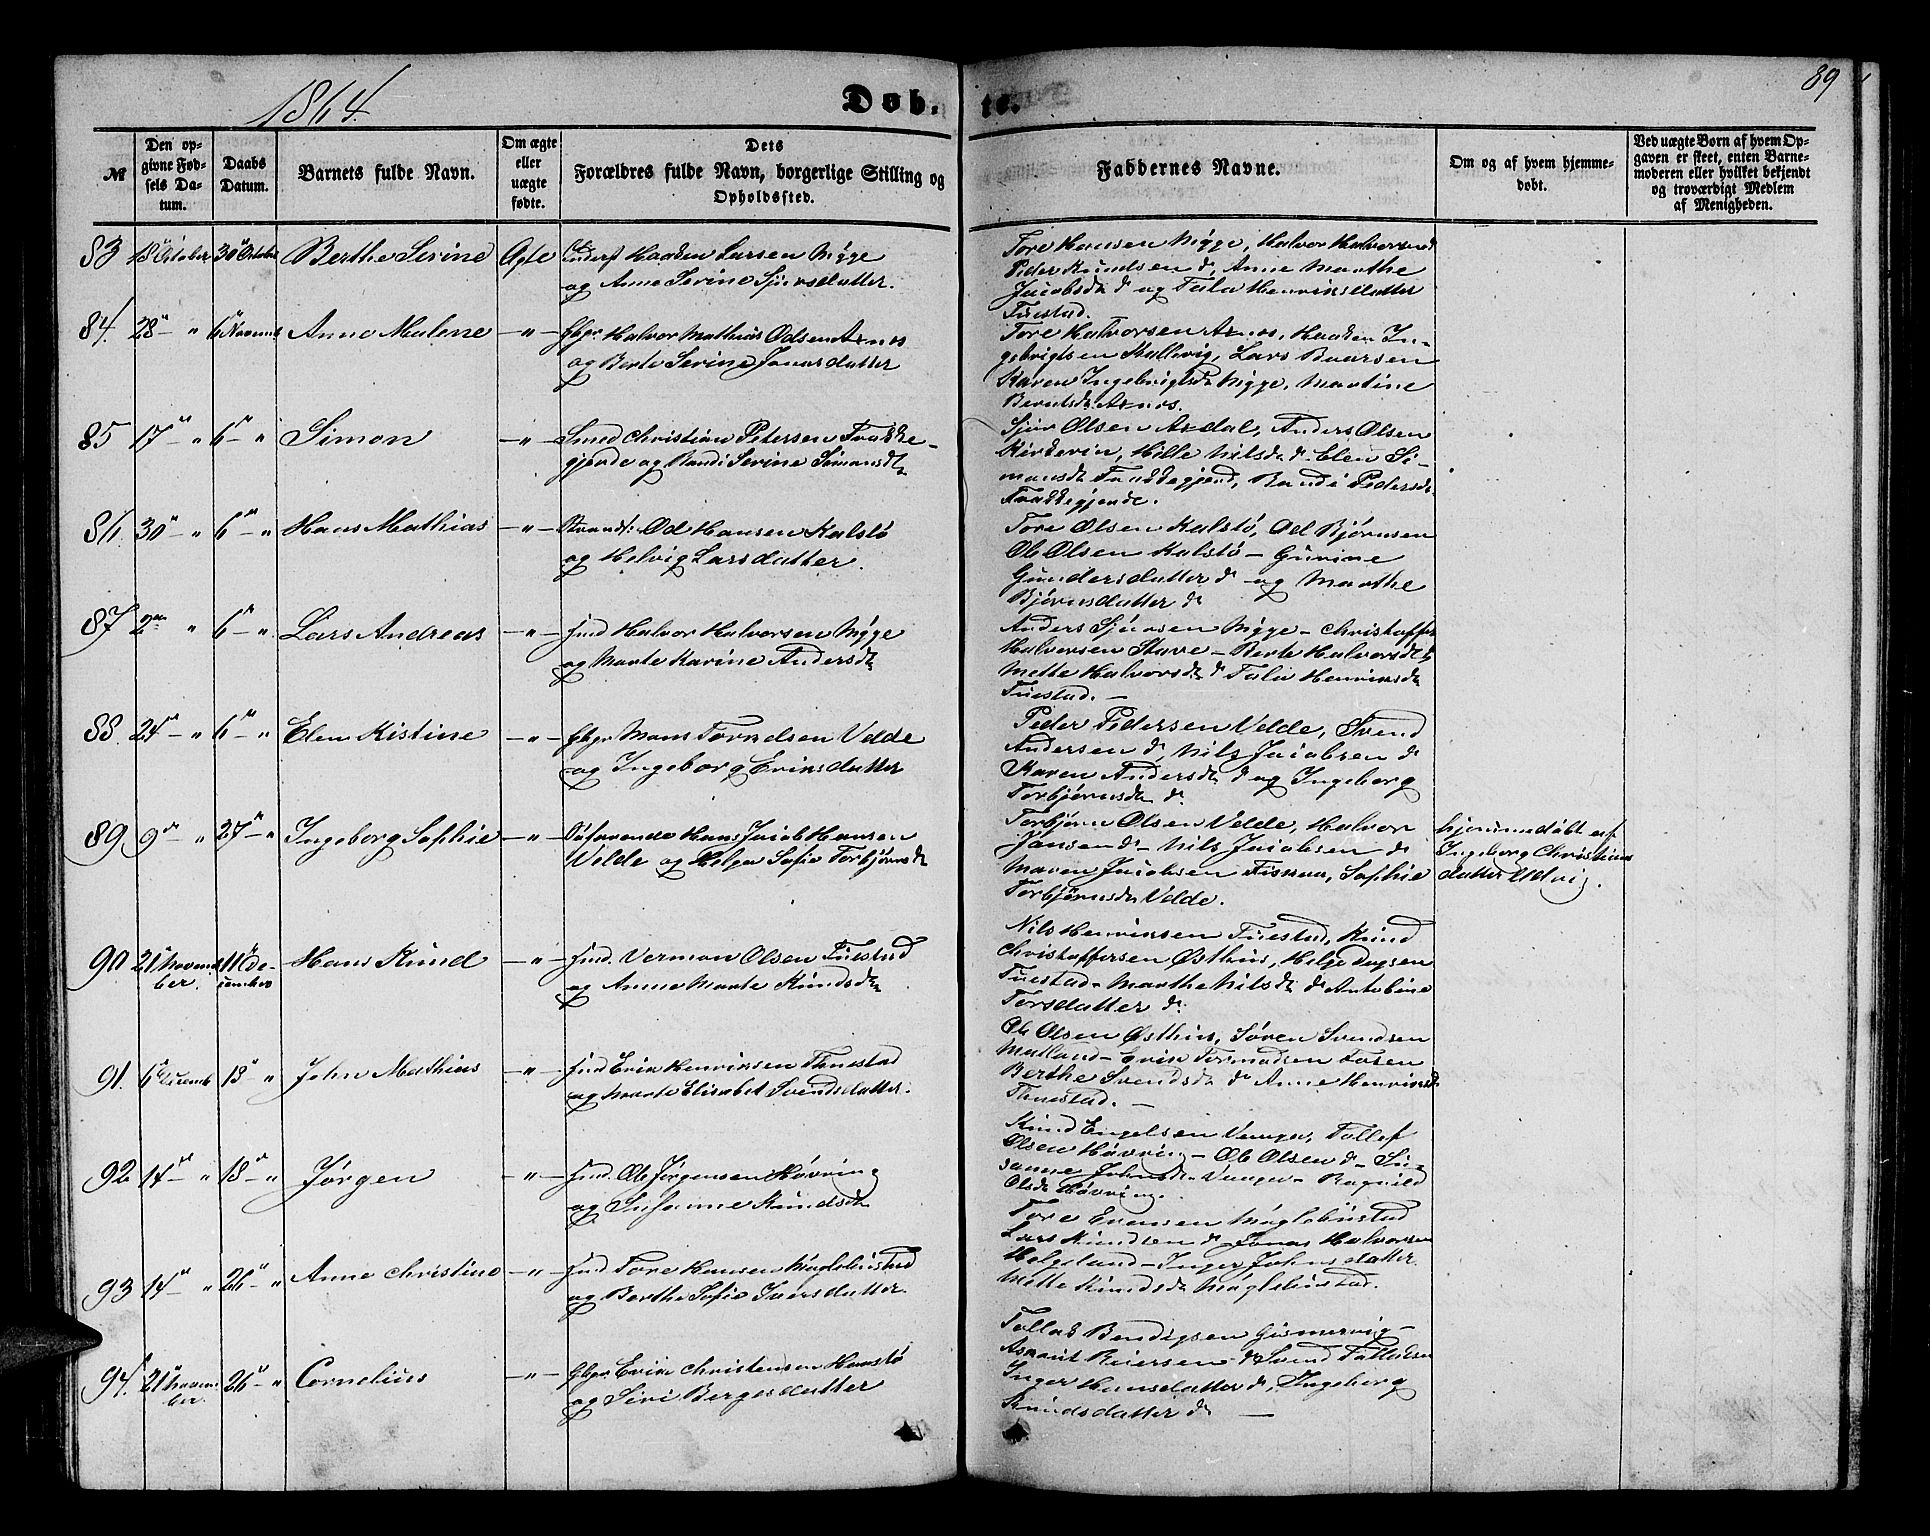 1864.
Døb-
te.
89
№
Den op-
givne Fød-
sels Da-
tum.
Daabs
Datum.
Barnets fulde Navn.
Om ægte
eller
uægte
fødte.
Dets
Forældres fulde Navn, borgerlige Stilling og
Opholdssted.
Faddernes Navne.
Om og af hvem hjemme-
døbt.
Ved uægte Børn af hvem Op-
gaven er skeet, enten Barne-
moderen eller hvilket bekjendt
og troværdigt Medlem
af Menigheden.
83 18 October 30 October Berthe Serine Ægte Haaken Larsen Nygge
og Anne Serine Sjursdatter.
Tore Hansen Nygge, Halvor Halvorsen do
Peder Knudsen do, Anne Marthe
Jacobsd do og Tala Henriksdatter
Tuestad.
84. 28 — " 6 Novemb Anne Malene —"— Halvor Mathias Odsen
og Berte Serine Jonasdatter
Tore Halvorsen Haaken In-
gebrigtsen Kallevig, Lars Baarsen
Karen Ingebrigtsd Nygge, Martine
Berntsd
85 17 — " 6 — " Simon —"— Smed Christian Petersen Frakke-
gjerde og Randi Serine Simonsd
Sjur Olsen Anders Olsen
Hille Nilsd do Elen Si-
monsd Frakkegjerd, Randi Pedersd
Frakkegjerde.
86. 30 — " 6 — " Hans Mathias —"— Strands: Od Hansen Kalstø
og Helvig Larsdatter.
Tore Olsen Kalstø, Od Bjørnsen
Ole Olsen Kalstø — Gurine
Gundersdatter do og Marthe
Bjørnsdatter do
87 2den " 6 — " Lars Andreas —"— Halvor Halvorsen Nygge
og Marte Karine Andersd
Anders Sjursen Nygge — Christoffer
Halvorsen Stave — Berte Halvorsd do
Mette Halvorsd do Talu Henriksd
Tuestad. —
88. 24 — " 6 — " Elen Kistine —"— Mons Tormodsen Velde
og Ingeborg Eriksdatter
Peder Pedersen Velde, Svend
Andersen do, Nils Jacobsen do
Karen Andersd do og Ingeborg
Torbjørnsd do.
89. 9 — " 27 — " Ingeborg Sophie —"— Søfarende Hans Jacob Hansen
Velde og Helga Sofie Torbjørnsd
Torbjørn Olsen Velde, Halvor
Jansen do — Nils Jacobsen do
Maren Jacobsen Fiskaa, Sophie
Torbjørnsd Velde.
hjemmedøbt af
Ingeborg Christians
datter Udvig.
90 21 Novem-
ber. 11 De-
cember Hans Knud —"— Vermon Olsen Tuestad
og Anne Marte Knudsd
Nils Henriksen Tuestad, Knud
Christoffersen Østhus, Helge Dagsen
Tuestad — Marthe Nilsd do Antobine
Torsdatter do.
91. 6 Decemb 18 " " John Mathias —"— Erik Henriksen Thuestad
og Marte Elisabet Svendsdatter.
Ole Olsen Østhus, Søren Svendsen
Matland — Erik Tormodsen Fosen
Berthe Svendsd do Anne Henriksd
Thuestad. —
92 14 — " 18 — " Jørgen —"— Ole Jørgensen Høvring
og Susanne Knudsd
Knud Engelsen Vaage, Tollef
Olsen Høvring — Ole Olsen do — Su-
sanne Johnsd Vaage — Ragnild
Olsd Høvring.
93 14 — " 26 — " Anne Christine —"— Tore Hansen Møglebustad
og Berthe Sofie Iversdatter.
Tore Evensen Møglebustad
Lars Knudsen do Jonas Halvorsen
Helgeland — Inger Johnsdatter
Mette Knudsd Møglebustad.
94. 21 Novem-
ber. 26 — " Cornelius —"— Erik Christensen Havstø
og Siri Bergesdatter
Tollak Bendigsen Gismervig —
Asmart Reiersen do Svend Tollaksen
Inger Hansdatter do, Ingeborg
Knudsdatter do —